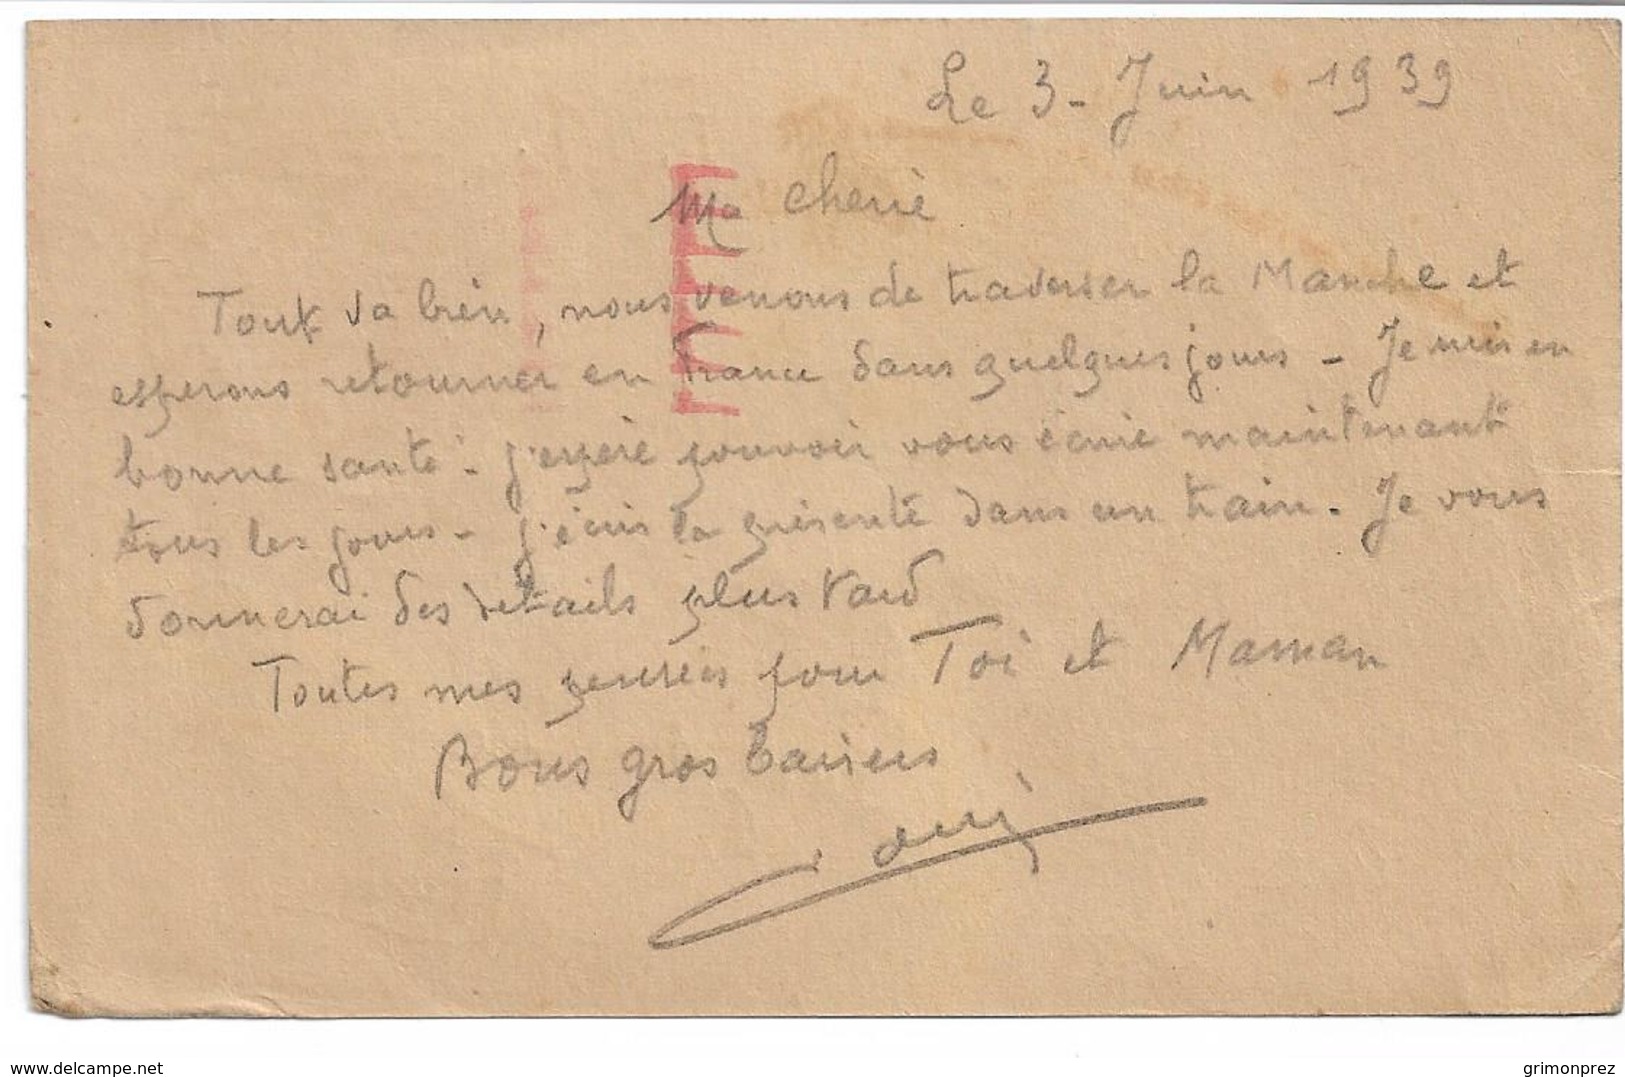 Le 3 - Juin 1939
Ma cherie
Tout va bien, nous venons de traverser la Manche et
esperons retourner en France dans quelques jours - Je suis en
bonne santé - j'espère pouvoir vous écrire maintenant
tous les jours - j'écris la présente dans un train. Je vous
donnerai des détails plus tard
Toutes mes pensées pour Toi et Maman
Bons gros baisers
www.delcampe.net
grimonprez